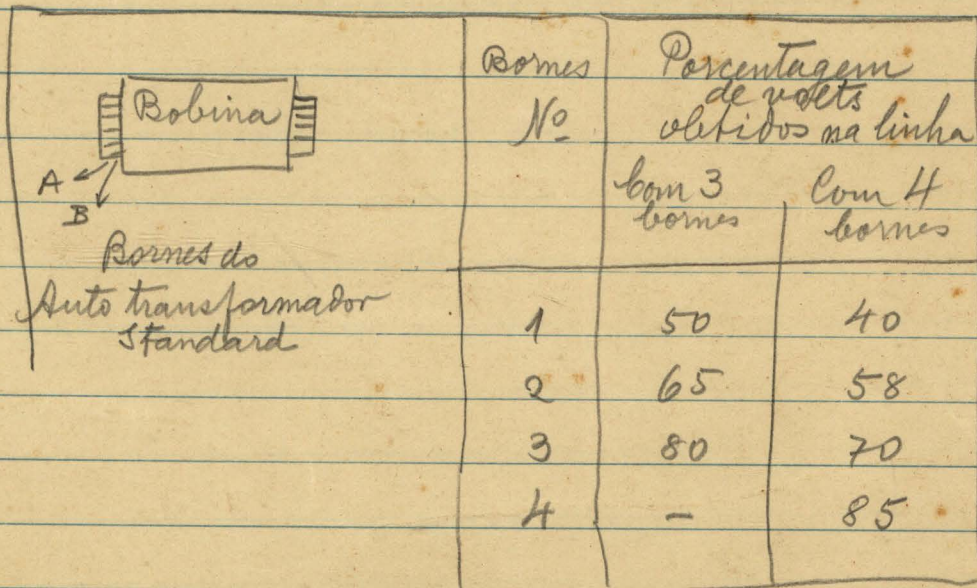 Bobina
A
B
Bornes do
Auto transformador
Standard
Bornes
Nº
Porcentagem
de volts
obtidos na linha
Com 3
bornes
Com 4
bornes
1 50 40
2 65 58
3 80 70
4 - 85